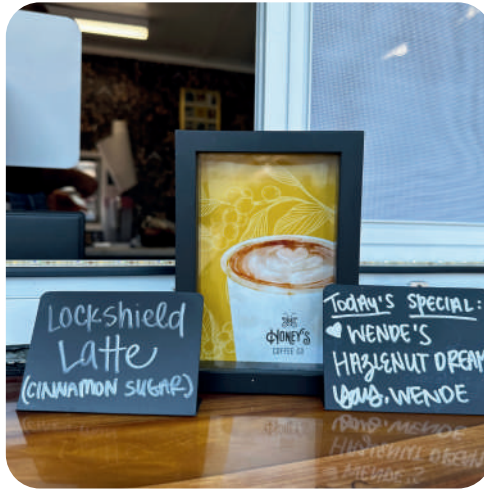 Lockshield
Latte
(CINNAMON SUGAR)
HONEY'S
COFFEE CO
TODAY'S SPECIAL:
WENDE'S
HAZLENUT DREAM
WENDE